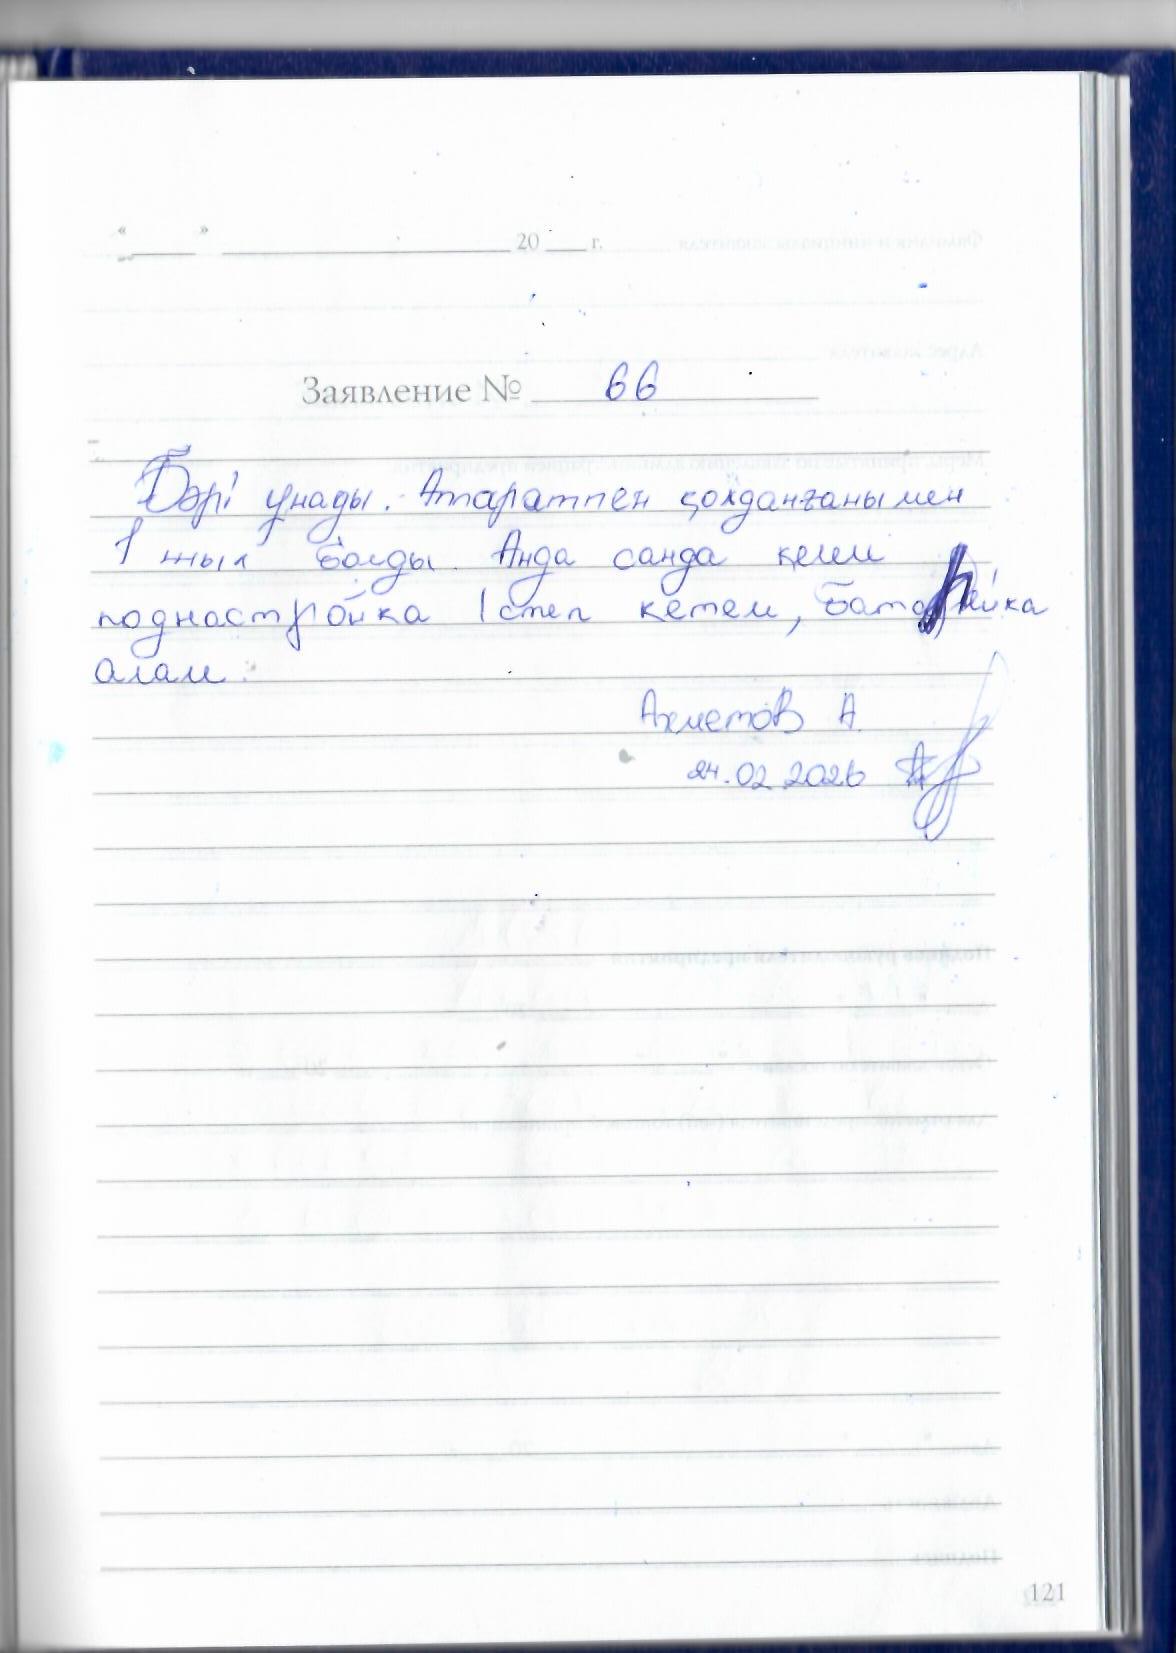 « ____ » ____________________ 20 ___ г.
Заявление № 66
Бәрі ұнады. Аппаратпен қолданғаныммен
1 жыл болды. Анда санда келем
поднастройка істеп кетем, батарейка
алам.
Ахметов А.
24.02.2026
121